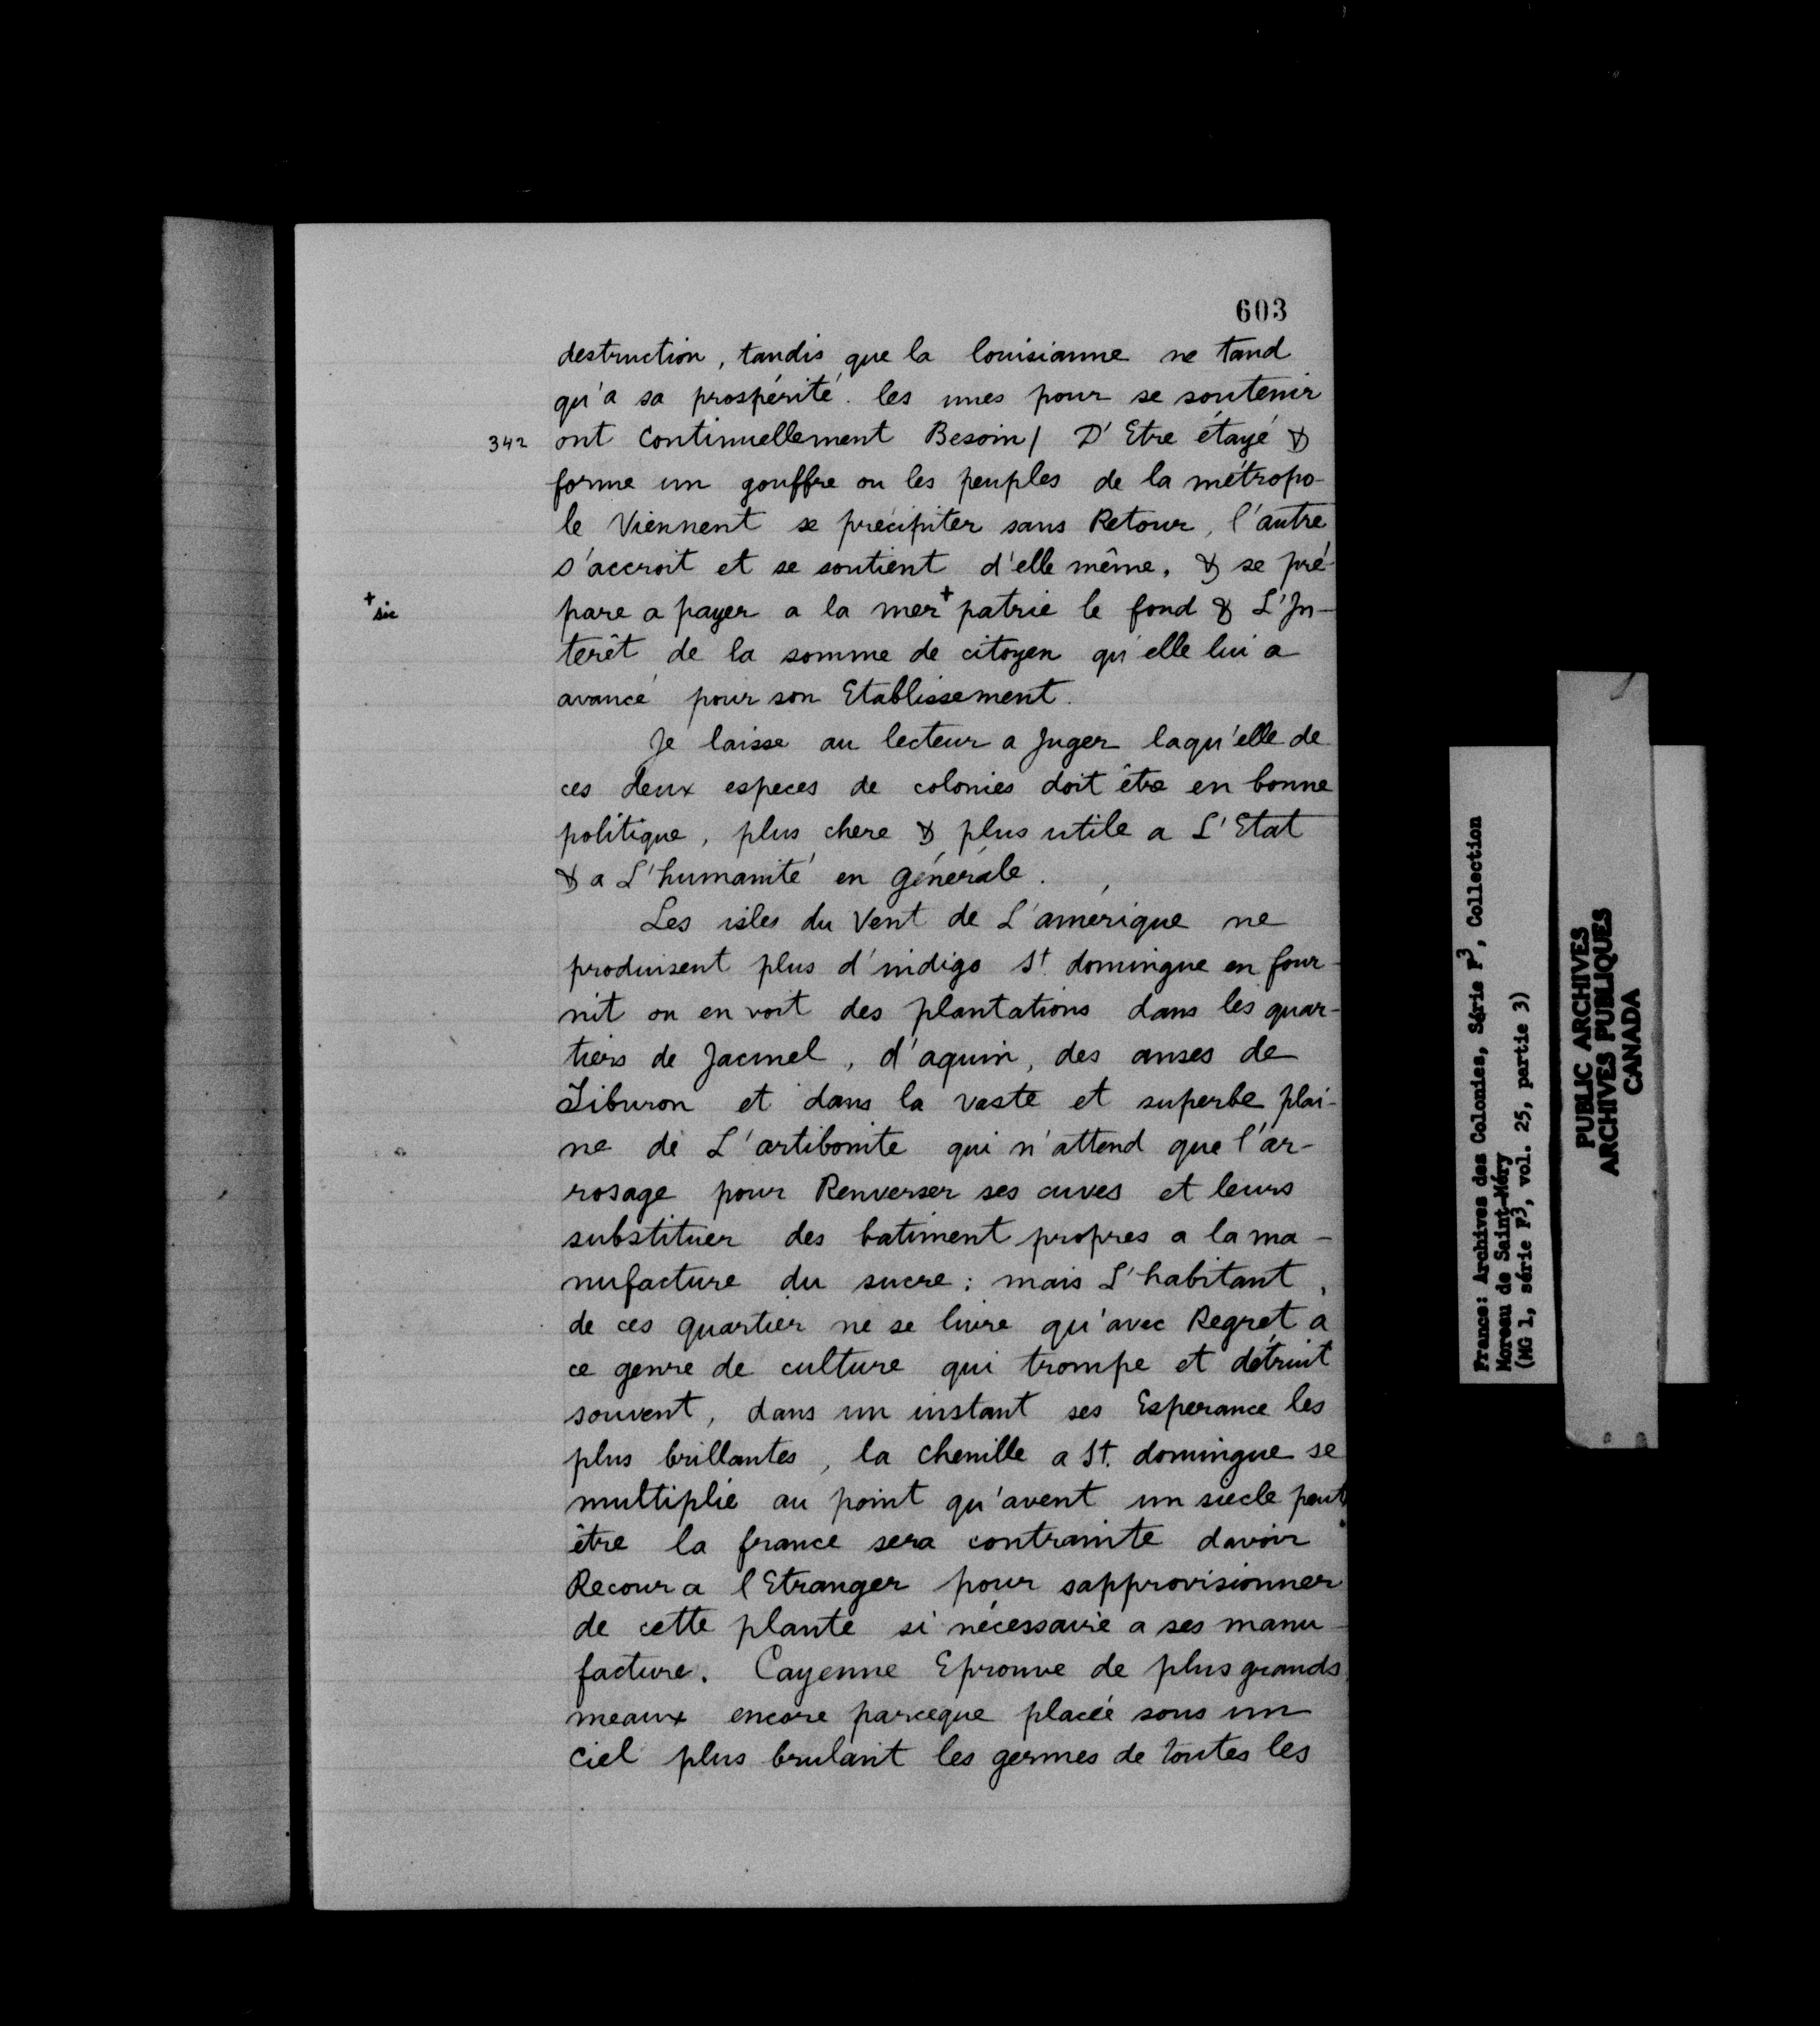 603
destruction, tandis que la louisianne ne tand
qu'a sa prospérité. les unes pour se soutenir
342 ont Continuellement Besoin / D'Etre étayé &
forme un gouffre ou les peuples de la métropo-
le Viennent se précipiter sans Retour, l'autre
s'accroit et se soutient d'elle même, & se pré-
+ sic pare a payer a la mer + patrie le fond & L'In-
terêt de la somme de citoyen qu'elle lui a
avancé pour son Etablissement.
Je laisse au lecteur a Juger laqu'elle de
ces deux especes de colonies doit être en bonne
politique, plus chere & plus utile a L'Etat
& a L'humanité en générale.
Les isles du Vent de L'amérique ne
produisent plus d'indigo St. domingue en four-
nit on en voit des plantations dans les quar-
tiers de Jacmel, d'aquin, des anses de
Tiburon et dans la vaste et superbe plai-
ne de L'artibonite qui n'attend que l'ar-
rosage pour Renverser ses cuves et leurs
substituer des batiment propres a la ma-
nufacture du sucre : mais L'habitant,
de ces quartier ne se livre qu'avec Regret a
ce genre de culture qui trompe et détruit
souvent, dans un instant ses Esperance les
plus brillantes, la chenille a St. domingue se
multiplie au point qu'avent un siecle peut
être la france sera contrainte davoir
Recour a l Etranger pour sapprovisionner
de cette plante si nécessaire a ses manu-
facture. Cayenne Eprouve de plus grands
meaux encore parceque placée sous un
Ciel plus brulant les germes de toutes les
France: Archives des Colonies, Série F3, Collection
Moreau de Saint-Méry
(MG 1, série F3, vol. 25, partie 3)
PUBLIC ARCHIVES
ARCHIVES PUBLIQUES
CANADA